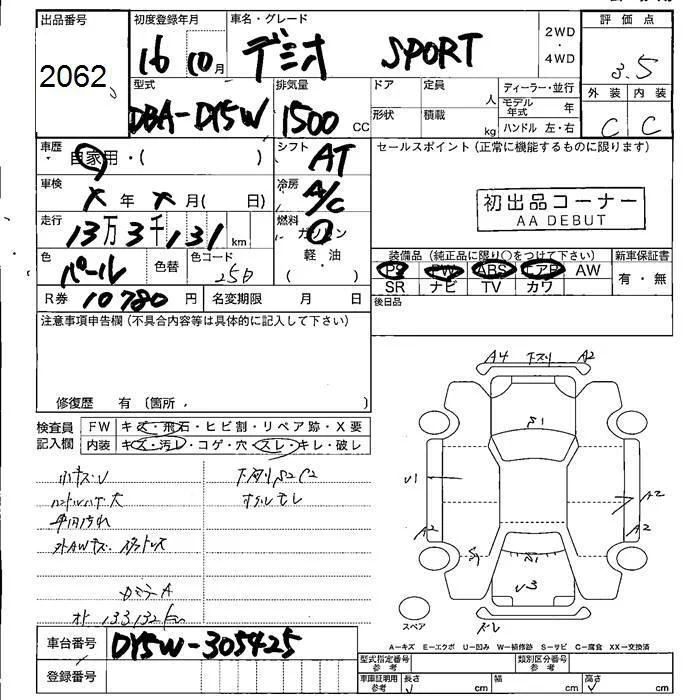 出品番号 初度登録年月 車名・グレード 2WD・4WD 評価点
2062 16 10月 デミオ SPORT 3.5
型式 排気量 ドア 定員 人 ディーラー・並行 外装 内装
DBA-DY5W 1500 CC 形状 積載 kg モデル年式 年 C C
ハンドル 左・右
車歴 自家用・( ) シフト AT セールスポイント(正常に機能するものに限ります)
車検 X 年 X 月( 日) 冷房 A/C 初出品コーナー
AA DEBUT
走行 13万3千131 km 燃料 ガソリン
軽・油
( )
装備品(純正品に限り○をつけて下さい) 新車保証書
色 パール 色替 色コード 25D PS PW ABS エアB AW 有・無
SR ナビ TV カワ
R券 10780円 名変期限 月 日 後日品
注意事項申告欄(不具合内容等は具体的に記入して下さい)
修復歴 有 (箇所, )
検査員記入欄 FW キズ・飛石・ヒビ割・リペア跡・X要
内装 キズ・汚レ・コゲ・穴・スレ・キレ・破レ
A4 下スリ A2
S1
U1
A2
A2
A2
S1
S1
U3
スペア
A=キズ E=エクボ U=凹み W=補修跡 S=サビ C=腐食 XX=交換済
車台番号 DY5W-305425 型式指定番号 参考 類別区分番号 参考
登録番号 車庫証明用 参考 長さ cm 幅 cm 高さ cm